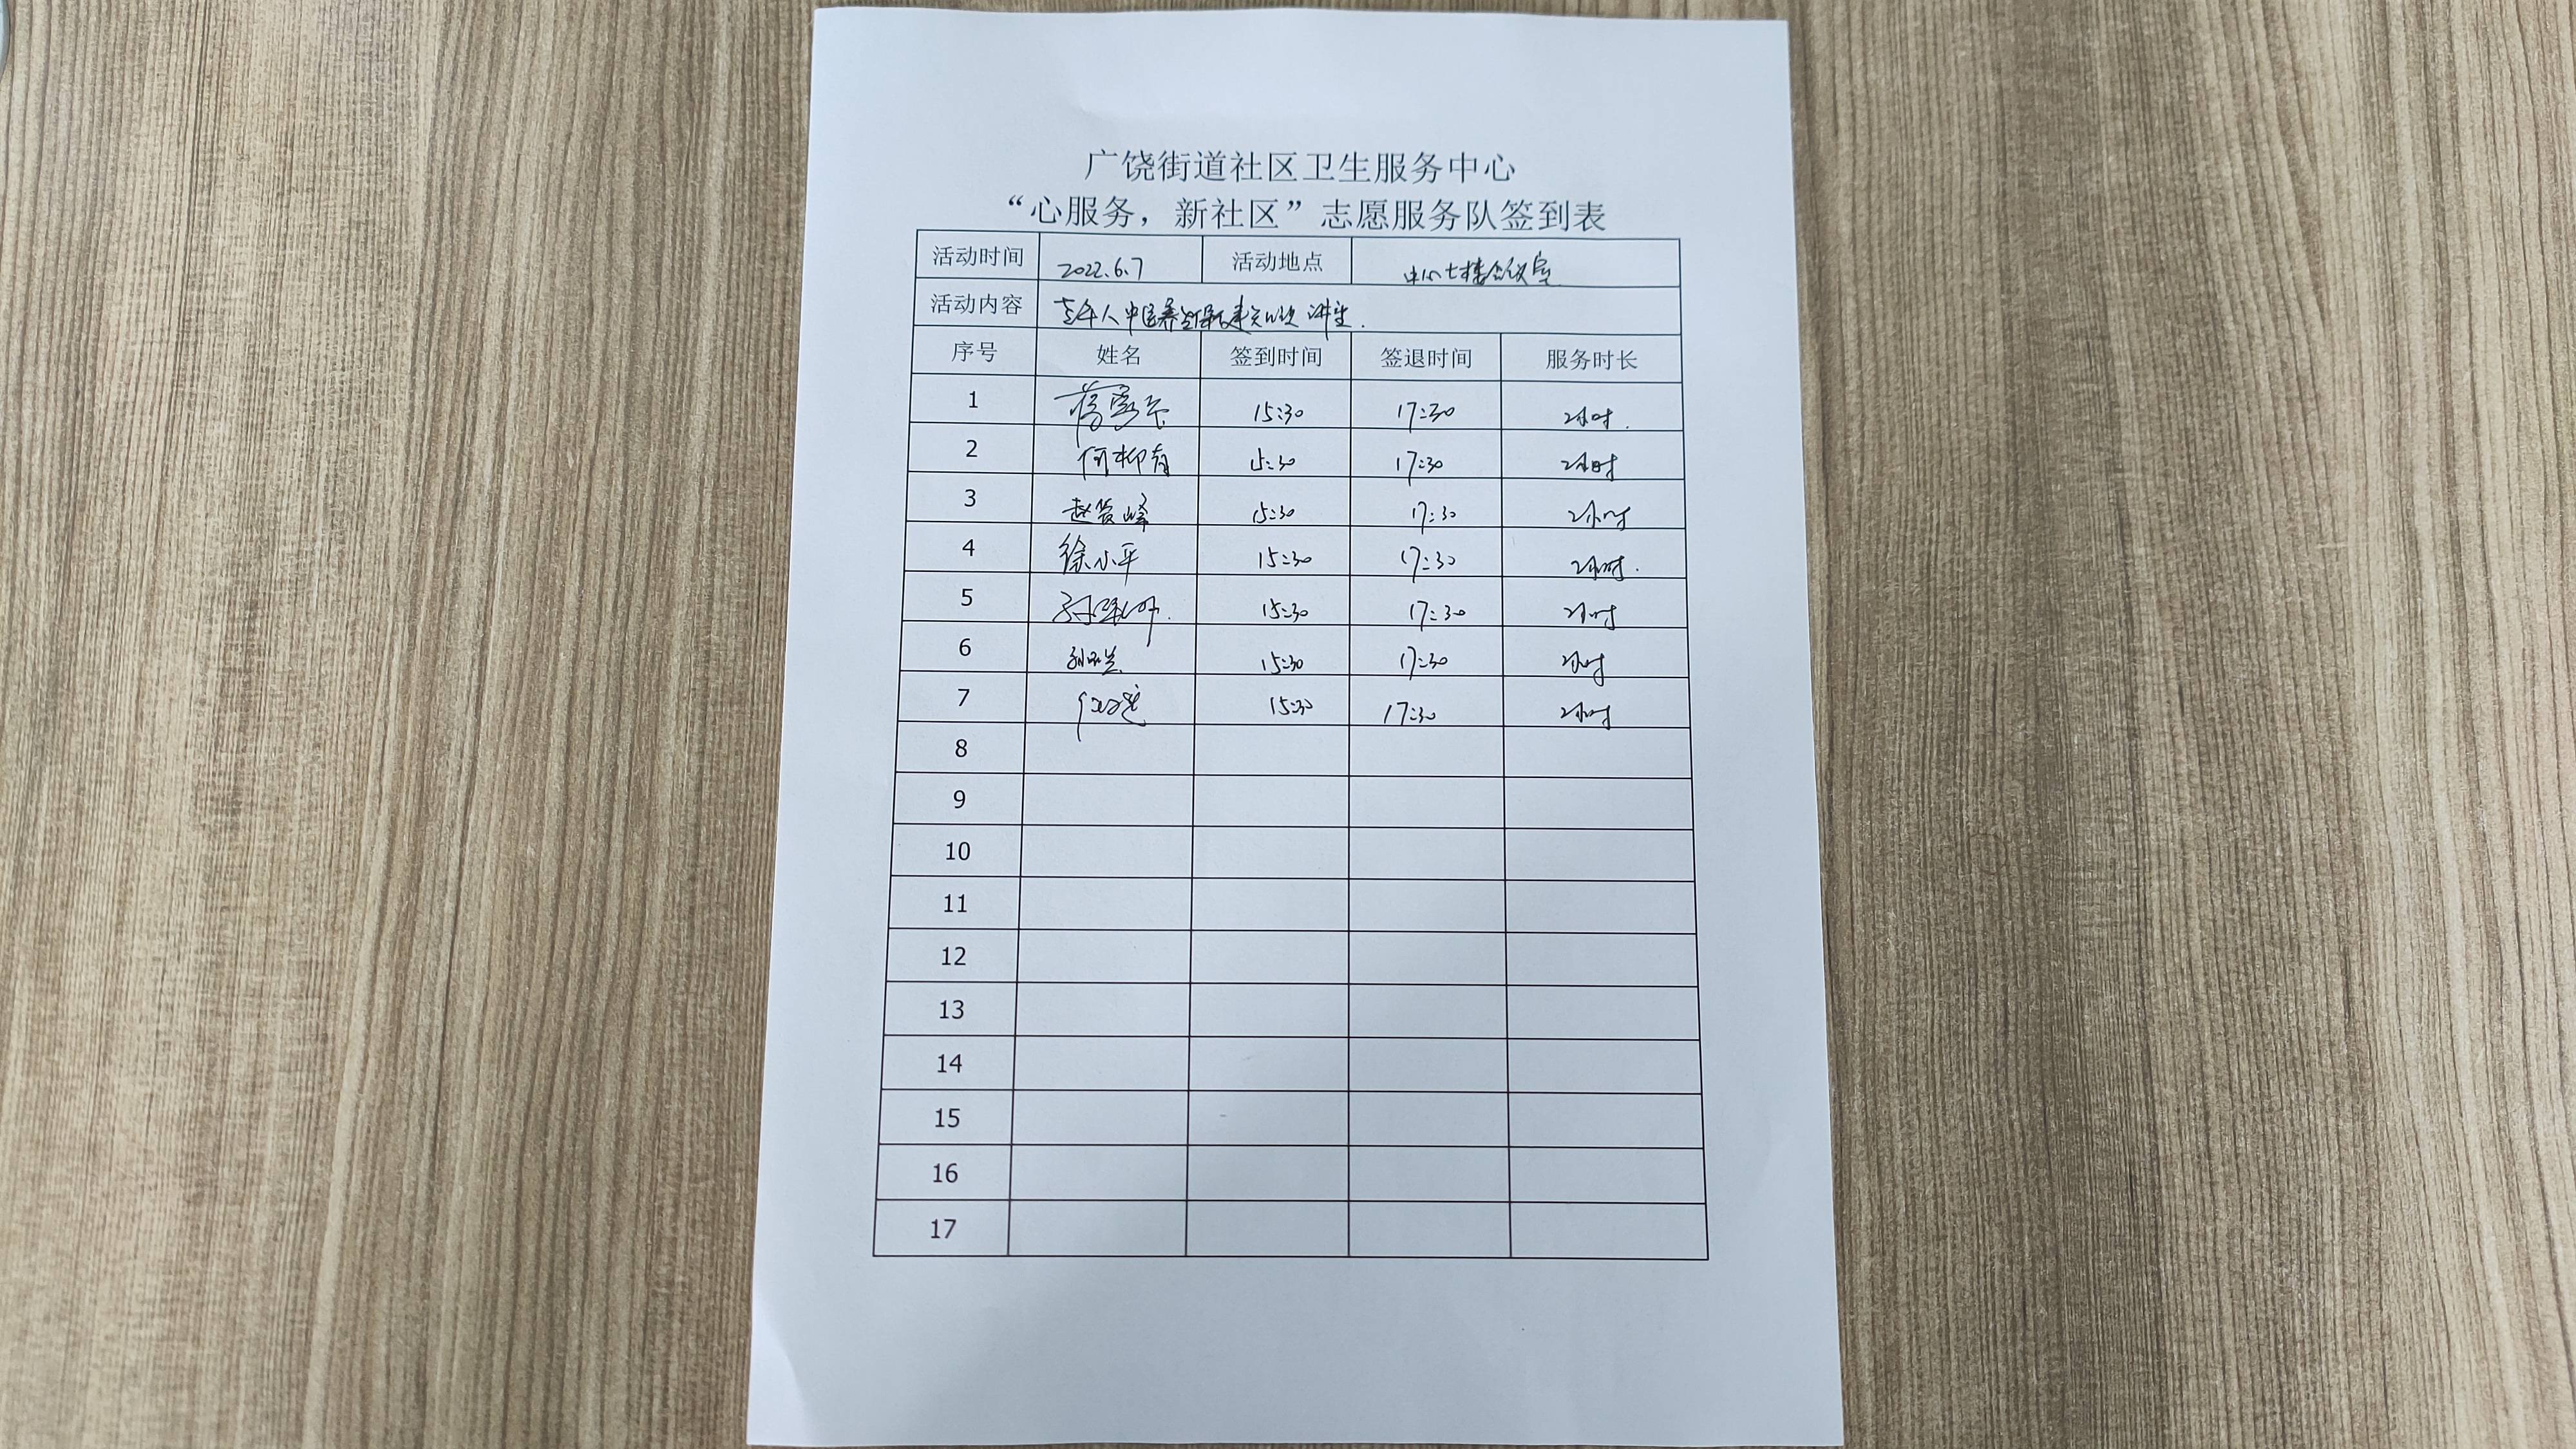 广饶街道社区卫生服务中心
“心服务，新社区”志愿服务队签到表
活动时间 2022.6.7 活动地点 中心七楼会议室
活动内容 老年人中医养生保健知识讲座.
序号 姓名 签到时间 签退时间 服务时长
1 15:30 17:30 2小时.
2 何柳青 15:30 17:30 2小时
3 赵 峰 15:30 17:30 2小时
4 徐小平 15:30 17:30 2小时.
5 15:30 17:30 2小时
6 15:30 17:30 2小时
7 15:30 17:30 2小时
8
9
10
11
12
13
14
15
16
17